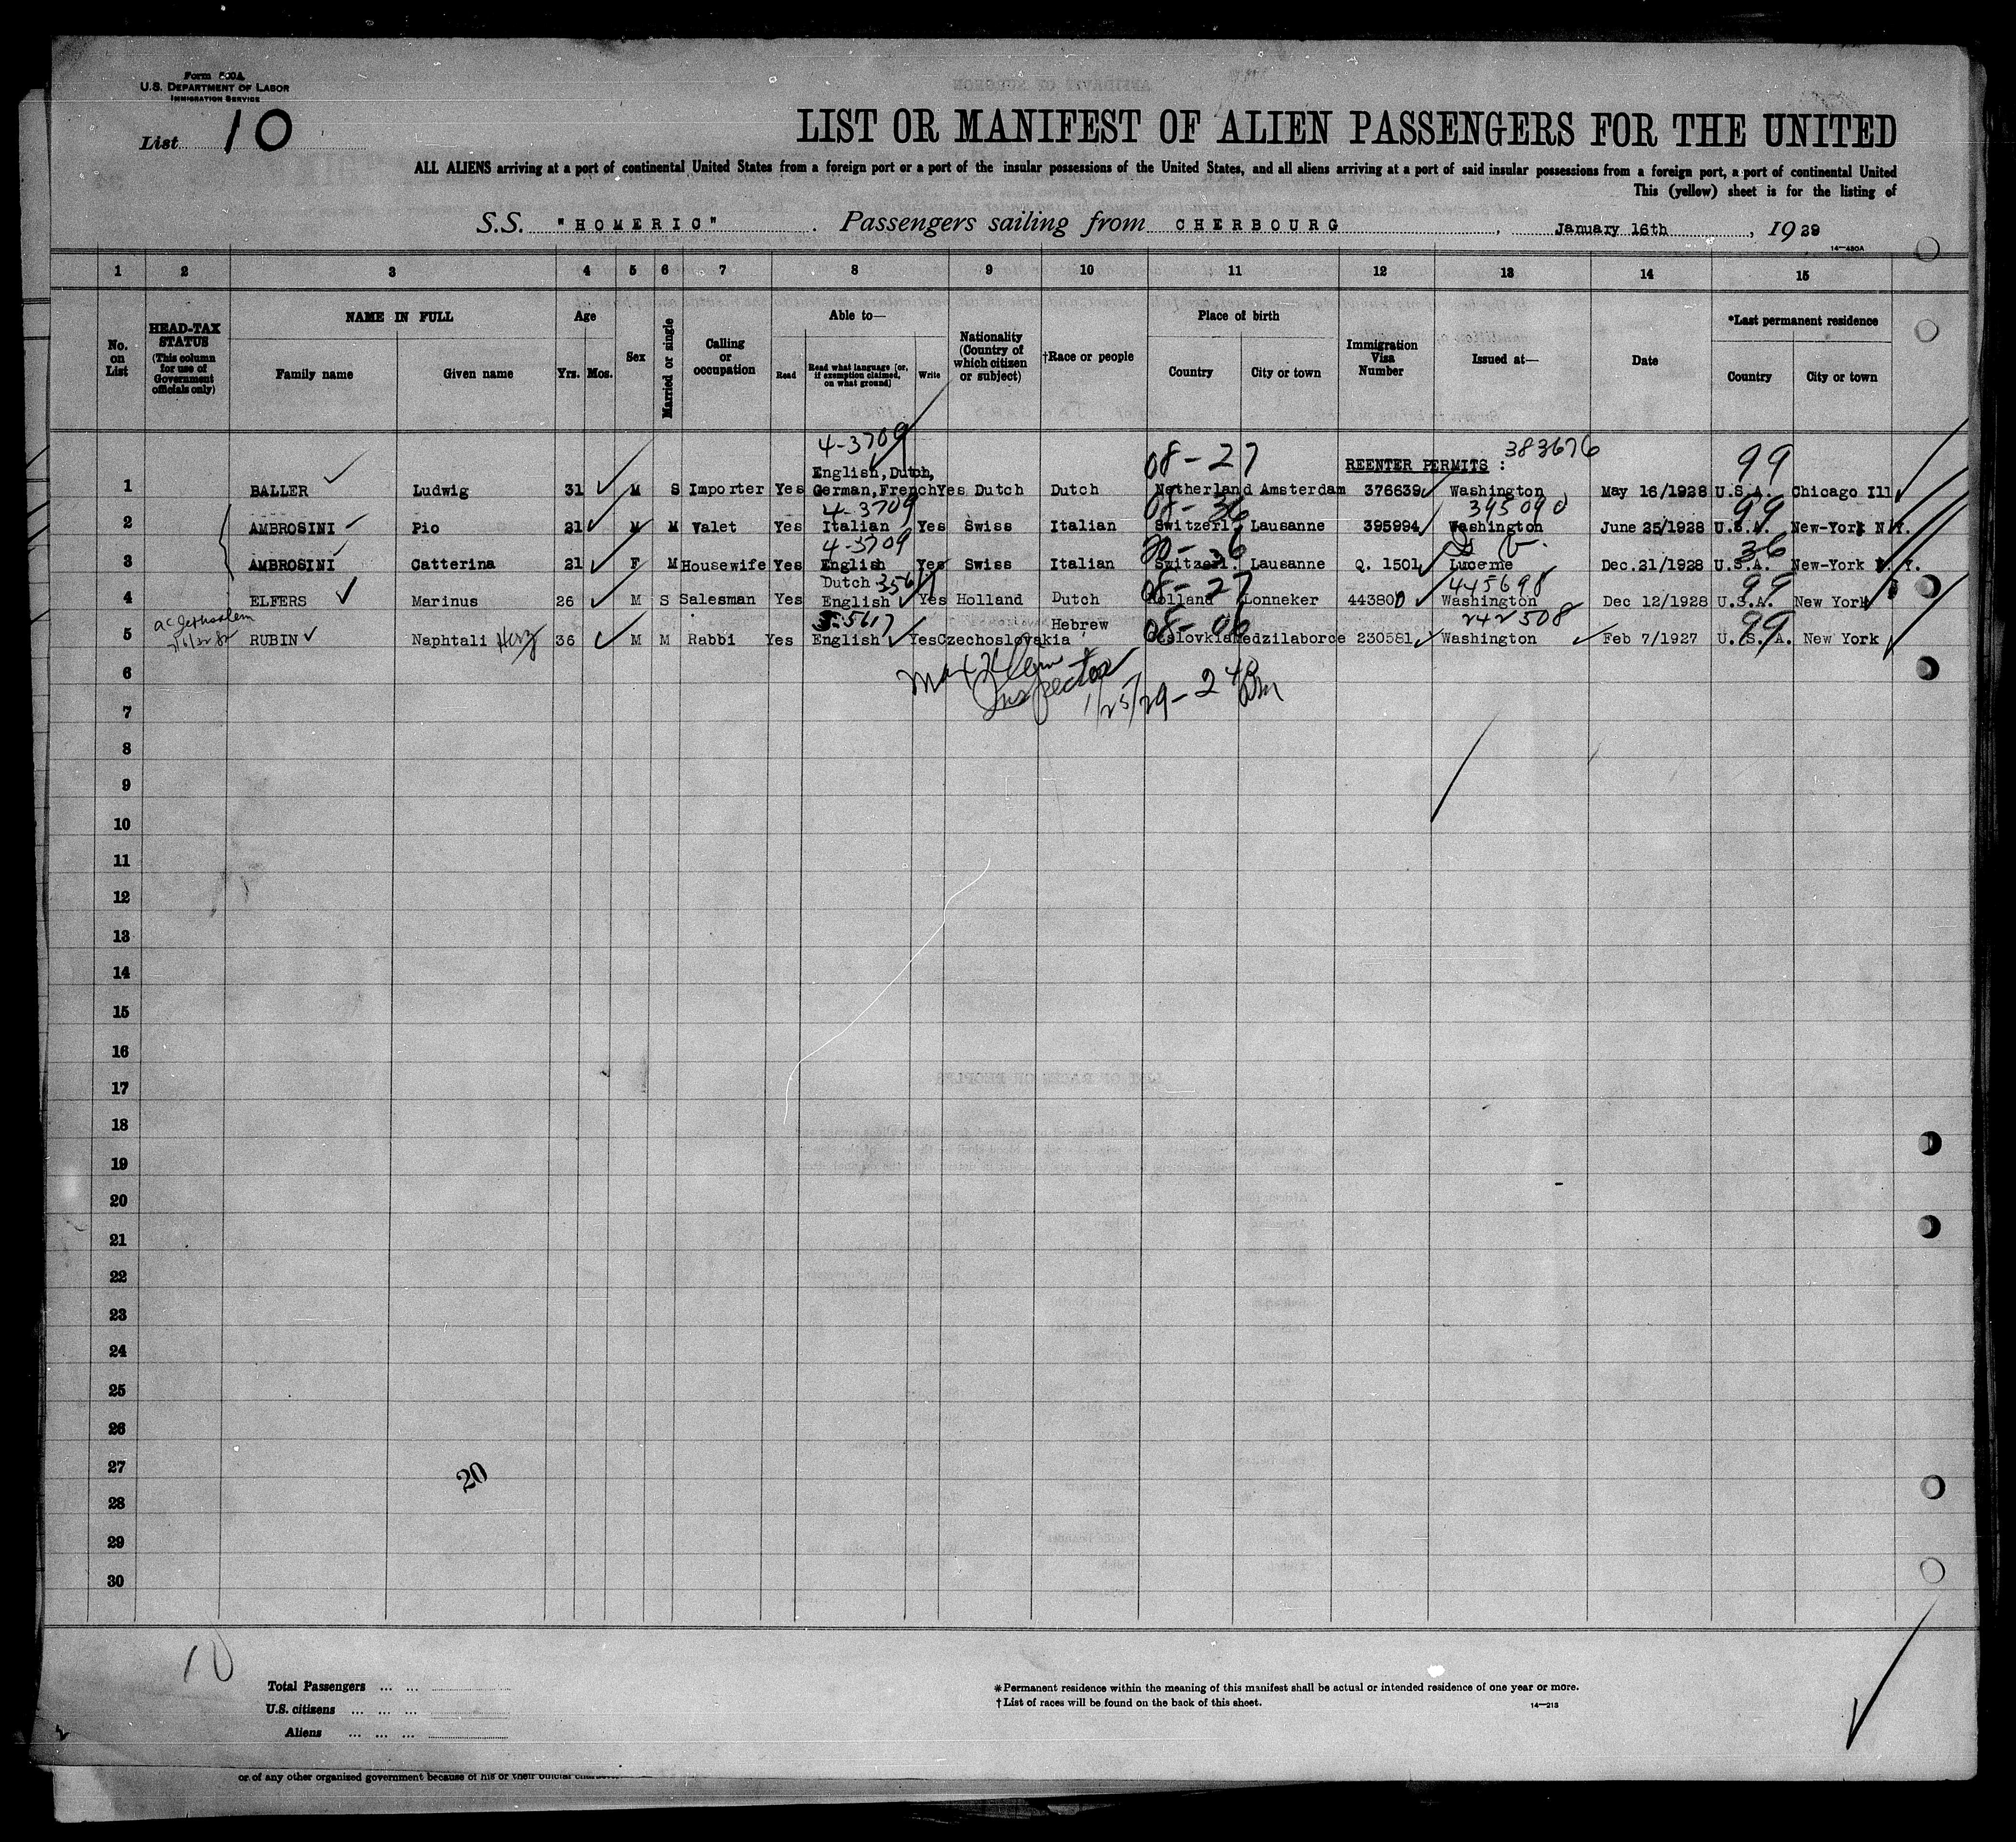 Form 500A
U.S. DEPARTMENT OF LABOR
IMMIGRATION SERVICE
List 10
LIST OR MANIFEST OF ALIEN PASSENGERS FOR THE UNITED
ALL ALIENS arriving at a port of continental United States from a foreign port or a port of the insular possessions of the United States, and all aliens arriving at a port of said insular possessions from a foreign port, a port of continental United
This (yellow) sheet is for the listing of
S.S. "HOMERIC". Passengers sailing from CHERBOURG, January 16th, 1929
14—480A
1 2 3 4 5 6 7 8 9 10 11 12 13 14 15
No. on List
HEAD-TAX STATUS (This column for use of Government officials only)
NAME IN FULL
Family name Given name
Age
Yrs. Mos.
Sex
Married or single
Calling or occupation
Able to—
Read Read what language [or, if exemption claimed, on what ground] Write
Nationality (Country of which citizen or subject)
†Race or people
Place of birth
Country City or town
Immigration Visa Number
Issued at—
Date
*Last permanent residence
Country City or town
4-3709 08-27 383676 99
English, Dutch, REENTER PERMITS :
1 BALLER Ludwig 31 M S Importer Yes German, French Yes Dutch Dutch Netherland Amsterdam 376639 Washington May 16/1928 U.S.A. Chicago Ill
4-3709 08-36 395090 99
2 AMBROSINI Pio 21 M M Valet Yes Italian Yes Swiss Italian Switzerl. Lausanne 395994 Washington June 25/1928 U.S.A. New-York N.Y.
4-3709 36
3 AMBROSINI Catterina 21 F M Housewife Yes English Yes Swiss Italian Switzerl. Lausanne Q. 1501 Lucerne Dec.21/1928 U.S.A. New-York N.Y.
Dutch 08-27 445698 99
4 ELFERS Marinus 26 M S Salesman Yes English Yes Holland Dutch Holland Lonneker 443800 Washington Dec 12/1928 U.S.A. New York
5-5617 Hebrew 08-06 242508 99
5 RUBIN Naphtali Herz 36 M M Rabbi Yes English Yes Czechoslovakia Czslovkia Medzilaborce 230581 Washington Feb 7/1927 U.S.A. New York
Inspector 1/25/29-2 40 Pm
6
7
8
9
10
11
12
13
14
15
16
17
18
19
20
21
22
23
24
25
26
27
20
28
29
30
10
Total Passengers ... ...
U.S. citizens ... ... ...
Aliens ... ... ...
*Permanent residence within the meaning of this manifest shall be actual or intended residence of one year or more.
†List of races will be found on the back of this sheet.
14—213
or of any other organized government because of his or their official